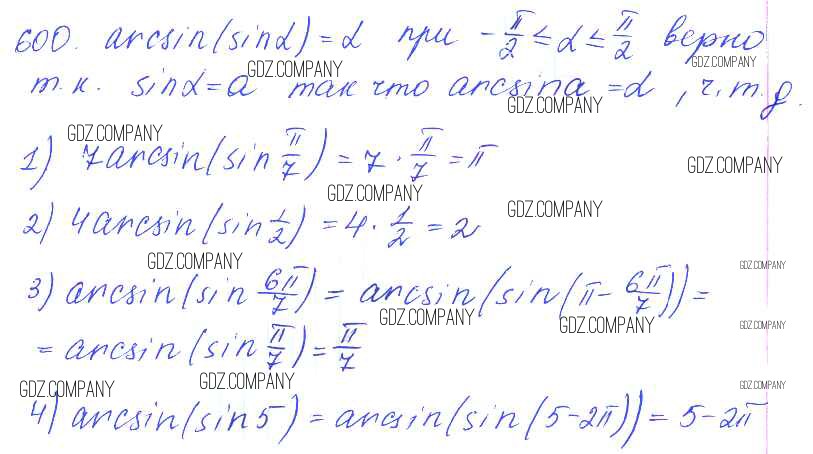 600. arcsin(sinα) = α при -π/2 ≤ α ≤ π/2 верно
GDZ.COMPANY GDZ.COMPANY
т.к. sinα = a так что arcsin a = α, ч.т.д.
GDZ.COMPANY
GDZ.COMPANY
1) 7arcsin(sin π/7) = 7 · π/7 = π
GDZ.COMPANY
GDZ.COMPANY GDZ.COMPANY
2) 4arcsin(sin 1/2) = 4 · 1/2 = 2
GDZ.COMPANY GDZ.COMPANY
3) arcsin(sin 6π/7) = arcsin(sin(π - 6π/7)) =
GDZ.COMPANY GDZ.COMPANY GDZ.COMPANY
= arcsin(sin π/7) = π/7
GDZ.COMPANY GDZ.COMPANY GDZ.COMPANY
4) arcsin(sin 5) = arcsin(sin(5-2π)) = 5-2π